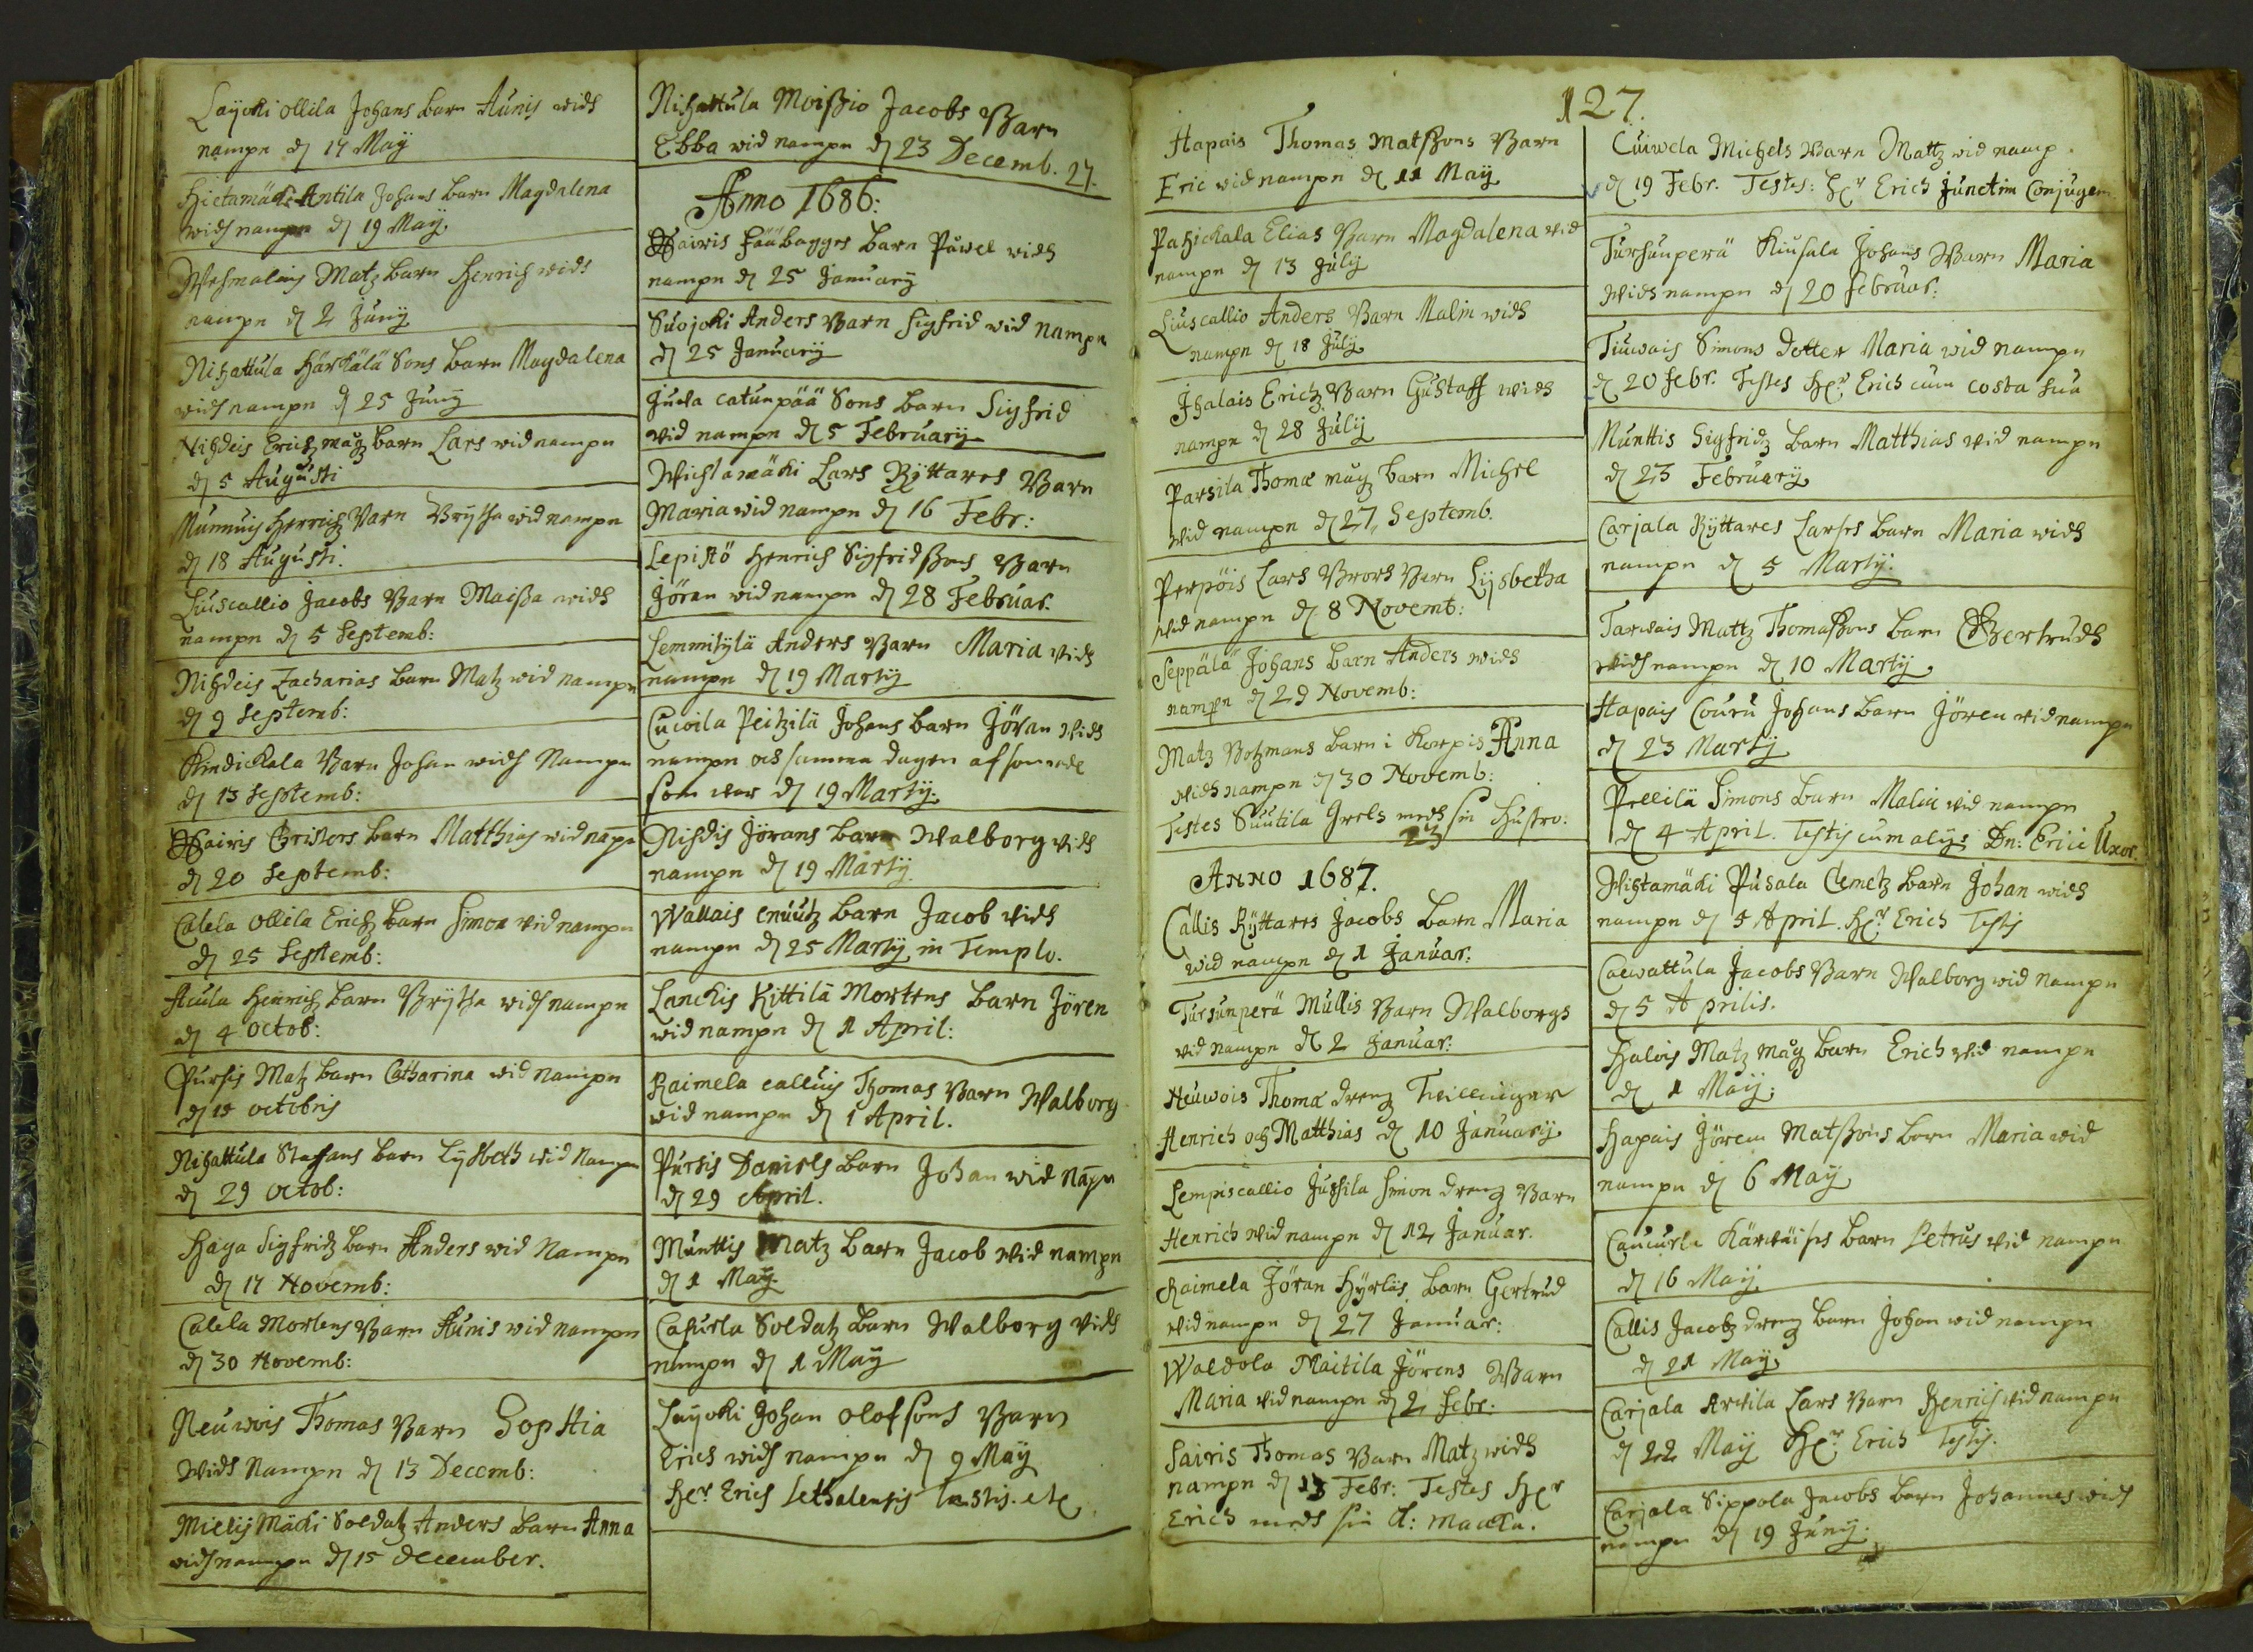 Layoki ollila Johans barn Aunis widh
nampn dj 17 Maÿ
Hietamäki Antila Johans barn Magdalena
widh nampn dj 19 Maÿ.
Wehmalais Matz barn Henrich widh
nampn dj 2 Junÿ
Nihattula Härkälä Sons barn Magdalena
widh nampn dj 25 Junÿ
Nihdeis Erich mågz barn Lars wid nampn
dj 5 Augusti
Munnuis Henrichz Barn Brijtha wid nampn
dj 18 Augusti.
Liuscallio Jacobs Barn Maissa widh
nampn dj 5 Septemb:
Nihdeis Zacharias barn Matz wid nampn
dj 9 Septemb:
Kindickala Barn Johan widh Nampn
dj 13 Septemb:
Sairis Christers barn Matthias wid nāpn
dj 20 Septemb:
Calela ollila Erichz barn Simon wid nampn
dj 25 Septemb:
Acula Henrichz barn Brijtha widh nampn
dj 4 octob:
Pursis Matz barn Catharina wid nampn
dj 18 octobris
Nihattula Staffans barn Lijsbeth wid Nampn
dj 29 octob:
Haga Sigfridz barn Anders wid Nampn
dj 17 Novemb:
Calela Mortens Barn Aunis wid nampn
dj 30 Novemb:
Neuwois Thomas Barn Sophia
widh Nampn dj 13 Decemb:
Mielis Mäki Soldatz Anders barn Anna
widh nampn dj 15 december.
Nihattula Moissio Jacobs Barn
Ebba wid nampn dj 23 Decemb. 27.
Anno 1686:
Sairis Fääbagges barn Påwel widh
nampn dj 25 Januarÿ
Suojoki Anders Barn Sigfrid wid nampn
dj 25 Januarÿ
Juva catunpää Sons barn Sigfrid
wid nampn dj 5 Februarÿ
Wichtamäki Lars Rÿttares Barn
Maria wid nampn dj 16 Febr:
Lepistö Henrich Sigfridssons Barn
Jöran wid nampn dj 28 Februar.
Lemmikylä Anders Barn Maria widh
nampn dj 19 Martÿ
Cuwila Peitzilä Johans barn Jöran widh
nampn och samma dagen afsomnade
som war dj 19 Martÿ.
Nihdis Jörans barn Walborg widh
nampn dj 19 Martÿ.
Wallais enuutz barn Jacob widh
nampn dj 25 Martÿ, in Templo.
Lanckis Kittilä Mortens barn Jören
wid nampn dj 1 April:
Raimela calluis Thomas Barn Walborg
wid nampn dj 1 April.
Pursis Daniels barn Johan wid nāpn
dj 29 April.
Munttis Matz barn Jacob wid nampn
dj 1 Maÿ.
Cahurla Soldatz barn Walborg widh
nampn dj 1 Maÿ
Layoki Johan olofsons Barn
Erich widh nampn dj 9 Maÿ
Her Erich Lethalensis testis. etc
127.
Hapais Thomas Matssons Barn
Eric wid nampn dj 11 Maÿ
Pahickala Elias Barn Magdalena wid
nampn dj 13 Julÿ
Liuscallio Anders Barn Malin widh
nampn dj 18 Julÿ
Ihalais Erichz Barn Gustaff widh
nampn dj 28 Julÿ
Parsila Thomæ mågz barn Michel
wid nampn dj 27 Septemb.
Perpöis Lars Brors Barn Lijsbetha
wid nampn dj 8 Novemb:
Seppälä Johans barn Anders widh
nampn dj 29 Novemb:
Matz Botzmans barn i Korpis Anna
widh nampn dj 30 Novemb:
Testes Suutila Grels medh sin hustro.
23
Anno 1687.
Callis Rÿttares Jacobs barn Maria
wid nampn dj 1 Januar:
Tursunperä Mullis Barn Walborgs
wid nampn dj 2 Januar:
Neuwois Thomæ drengz Twillingar
Henrich och Matthias dj 10 Januarÿ
Lempiscallio Jussila Simon drengz Barn
Henrich wid nampn dj 12 Januar.
Raimela Jöran Hyrläs barn Gertrud
wid nampn dj 27 Januar:
Waldola Maitila Jörens Barn
Maria wid nampn dj 2 Febr.
Sairis Thomas Barn Matz widh
nampn dj 13 Febr: Testes Her
Erich medh sin k: maaka.
Cuiwela Michels Barn Mattz wid namp.
dj 19 Febr. Testes: Her Erich junctim Conjugem
Tursunperä Kiusala Johans Barn Maria
widh nampn dj 20 februar:
Tiuwais Simons dotter Maria wid nampn
dj 20 febr. Testes Her Erich cum costa sua
Munttis Sigfridz barn Matthias wid nampn
dj 23 Februarÿ
Carjala Rÿttares Larses barn Maria widh
nampn dj 5 Martÿ.
Tarwais Mattz Thomassons barn Gertrudh
widh nampn dj 10 Martÿ
Hapais Couru Johans barn Jören wid nampn
dj 23 Martÿ
Pellilä Simons barn Malin wid nampn
dj 4 April. Testis cum alijs Dn: Erici Uxor.
Wihtamäki Pusala Clemetz barn Johan widh
nampn dj 5 April. Her Erich Testis
Caewattula Jacobs Barn Walborg wid nampn
dj 5 Aprilis.
Halois Matz mågz barn Erich wid nampn
dj 1 Maÿ:
Hapais Jören Matssons barn Maria wid
nampn dj 6 Maÿ
Caucurla Kärwäises barn Petrus wid nampn
dj 16 Maÿ
Callis Jacobz drengz barn Johan wid nampn
dj 21 Maÿ
Carjala Arwila Lars Barn Henrich wid nampn
dj 22 Maÿ Her Erich Testis.
Carjala Sippola Jacobs barn Johannes widh
nampn dj 19 Junÿ.